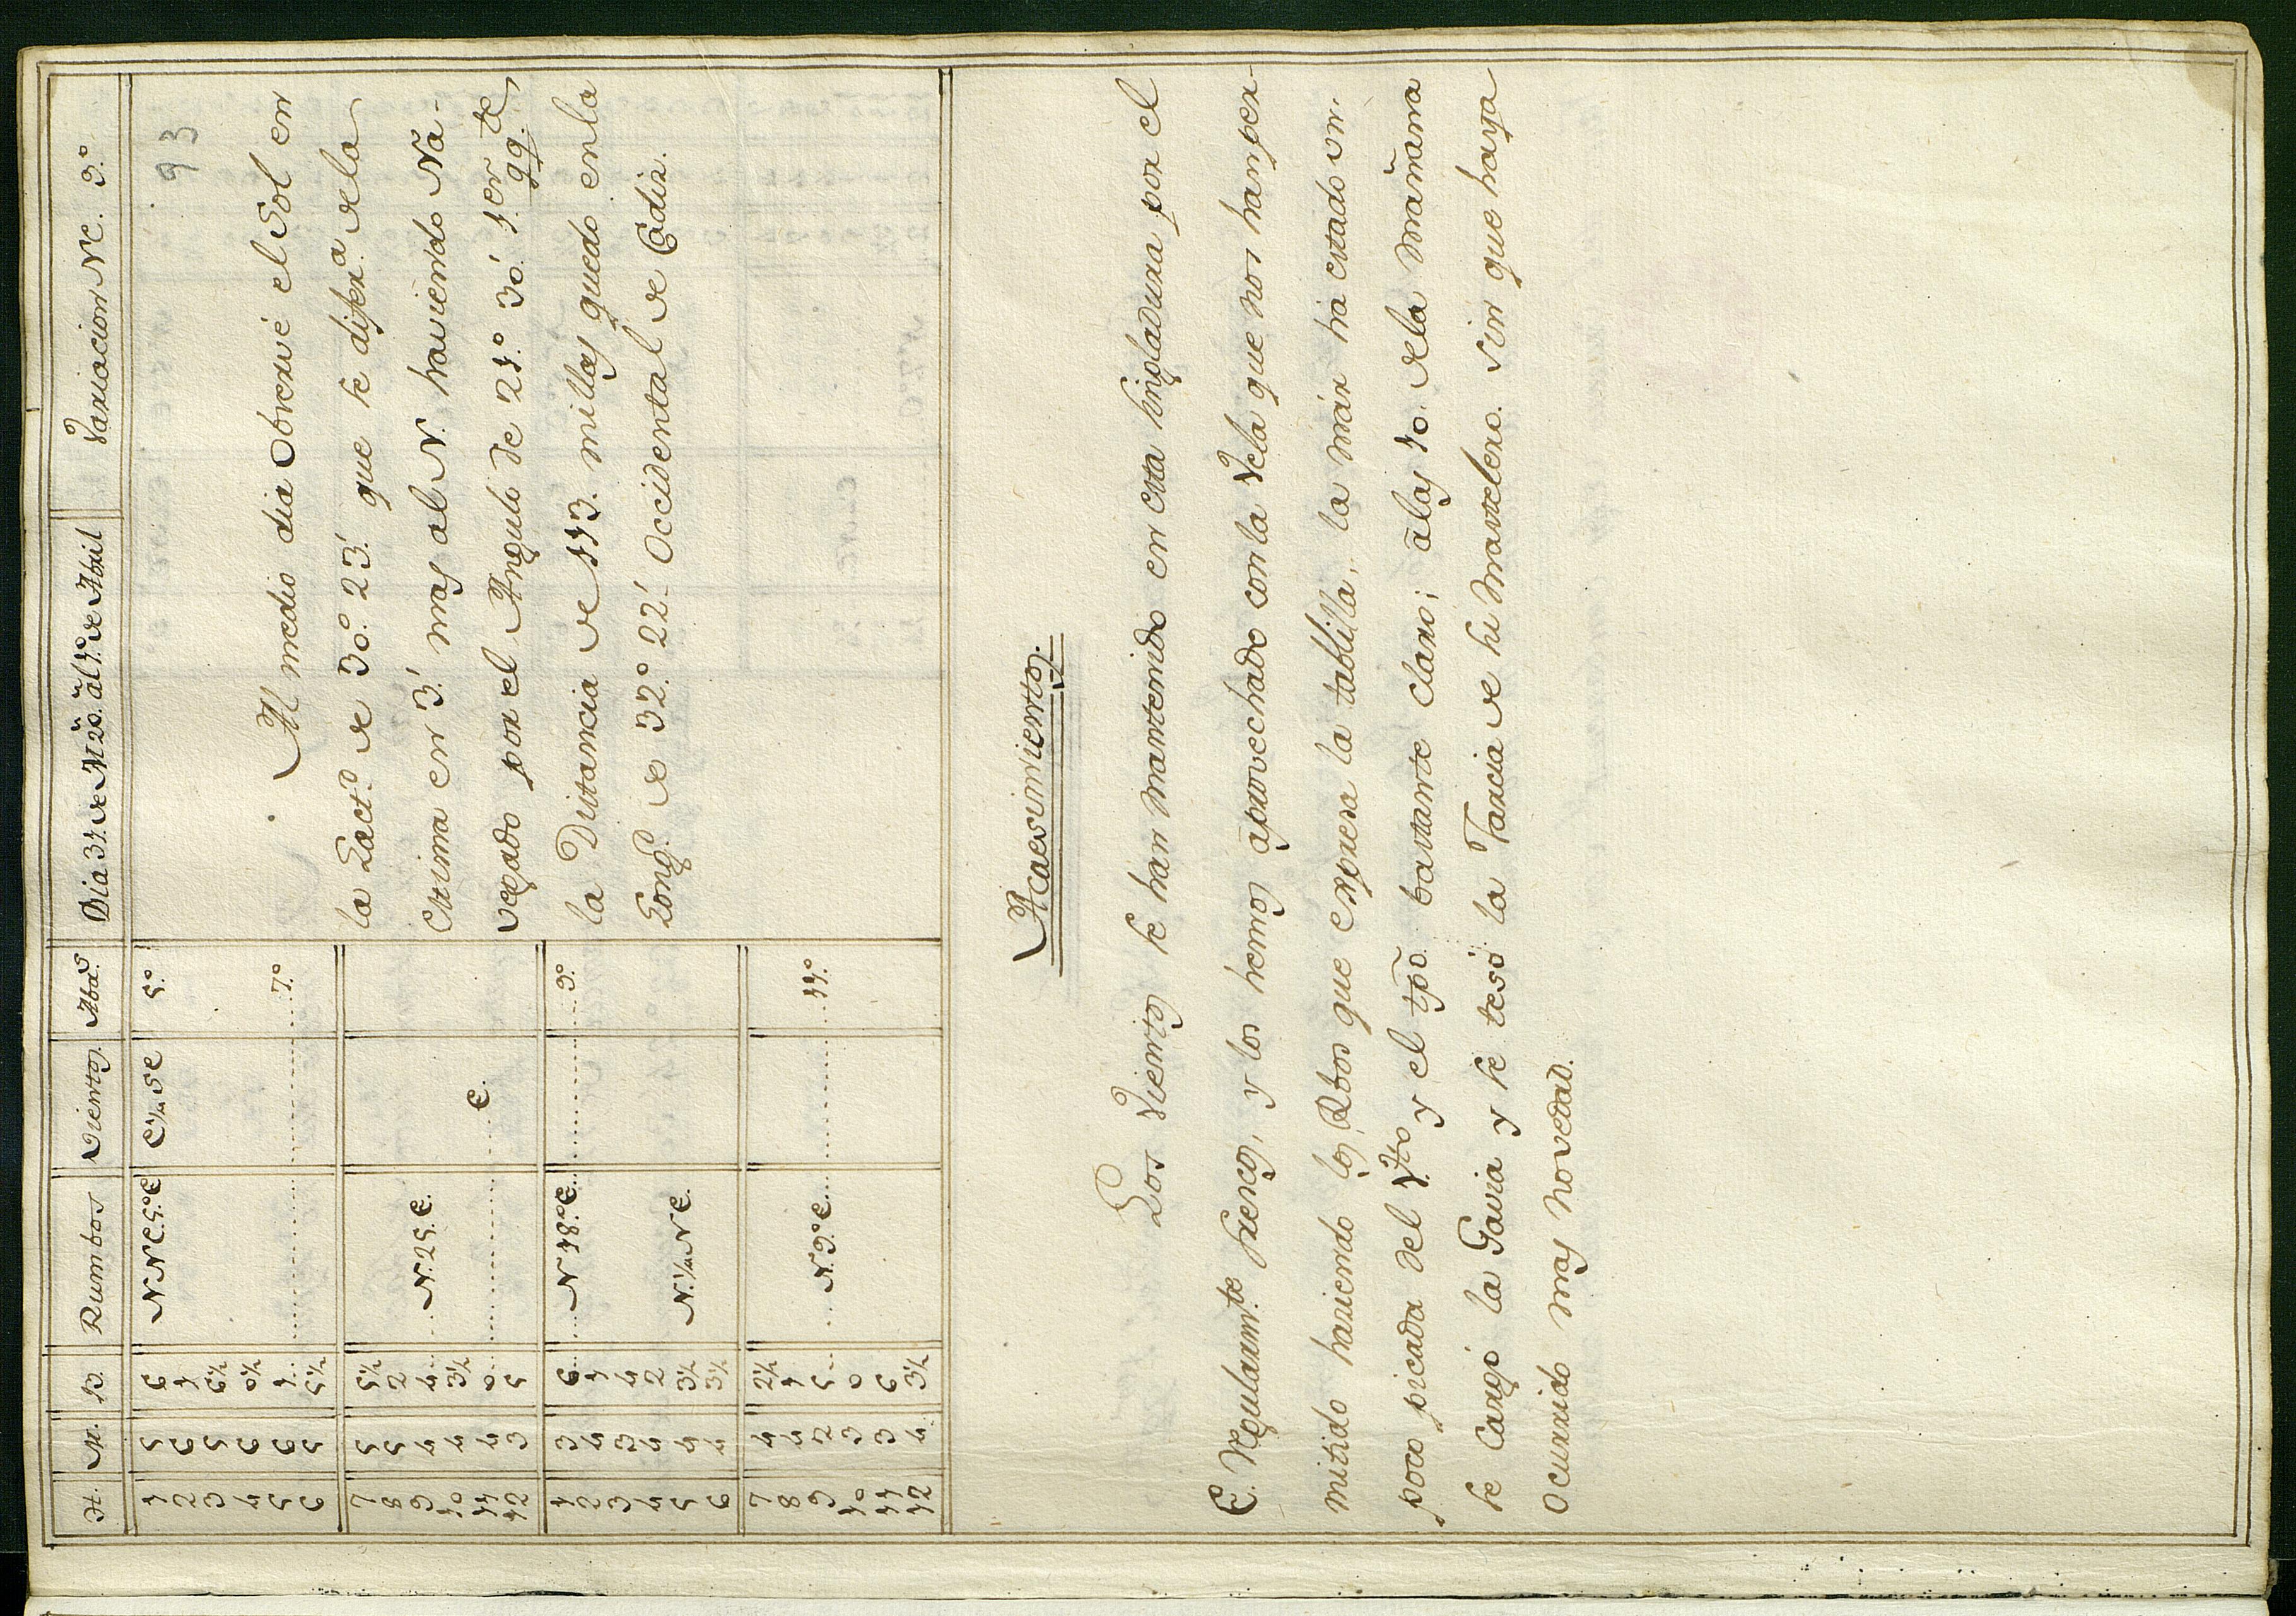 H. M. P. Rumbos Vientos. Aba.º Dia 31. de Mzo. al 1.º de Abril Variacion NE. 3.º
93
1 5 6 NNE.5.ºE E¼SE 5.º
2 6 1
3 5 6½
4 6 0½
5 6 1 7.º
6 5 5½
7 5 5½
8 5 2
9 4 4 N.25.E.
10 4 3½
11 4 0 E.
12 3 5
1 3 6 N18.ºE. 9.º
2 4 1
3 3 4
4 4 2
5 4 3½ N.¼NE.
6 4 3½
7 4 2½
8 4 1
9 2 5 N.9.ºE. 11.º
10 3 0
11 3 6
12 4 3½
Al medio dia Observé el Sol en
la Lact.d de 30.º 23.' que se difer.a de la
Estima en 3.' mas al N. haviendo Na-
vegado por el Angulo de 21.º 30.' 1.er qq.te
la Distancia de 113. millas quedo en la
Long.d de 32.º 22.' Occidental de Cadiz.
Acaesimientos.
Los Vientos se han mantenido en esta singladura por el
E. Regularm.te frescos, y los hemos aprovechado con la Vela que nos han per-
mitido haziendo los Rbos que expresa la tablilla, la mar ha estado un
poco picada del 1.º q.to y el tpõ. bastante claro; a las 10. de la mañana
se Cargó la Gavia y se tesó la Jarcia de su mastelero. sin que haya
Ocurrido mas novedad.